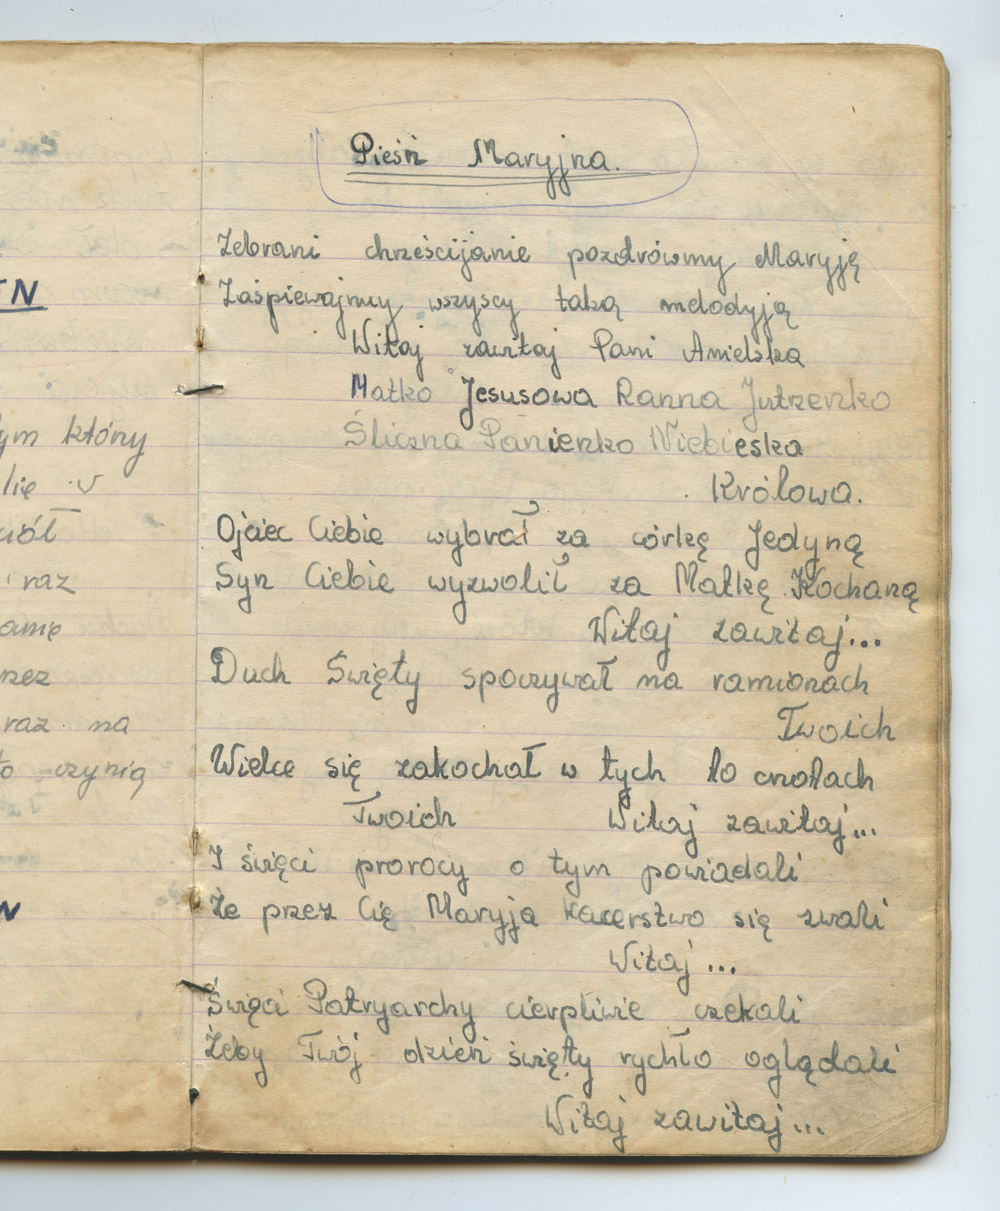 IN
ym który
lię v
raz
raz na
czynią
N
Pieśń Maryjna.
Zebrani chrześcijanie pozdrówmy Maryję
Zaśpiewajmy wszyscy taką melodyją
Witaj zawitaj Pani Anielska
Matko Jesusowa Ranna Jutrzenko
Śliczna Panienko Niebieska
Królowa.
Ojciec Ciebie wybrał za córkę Jedyną
Syn Ciebie wyzwolił za Matkę Kochaną
Witaj zawitaj...
Duch Święty spoczywał na ramionach
Twoich
Wielce się zakochał w tych to cnotach
Twoich Witaj zawitaj...
I święci prorocy o tym powiadali
Że przez Cię Maryja kacerstwo się zwali
Witaj...
Święci Patryarchy cierpliwie czekali
Żeby Twój dzień święty rychło oglądali
Witaj zawitaj...